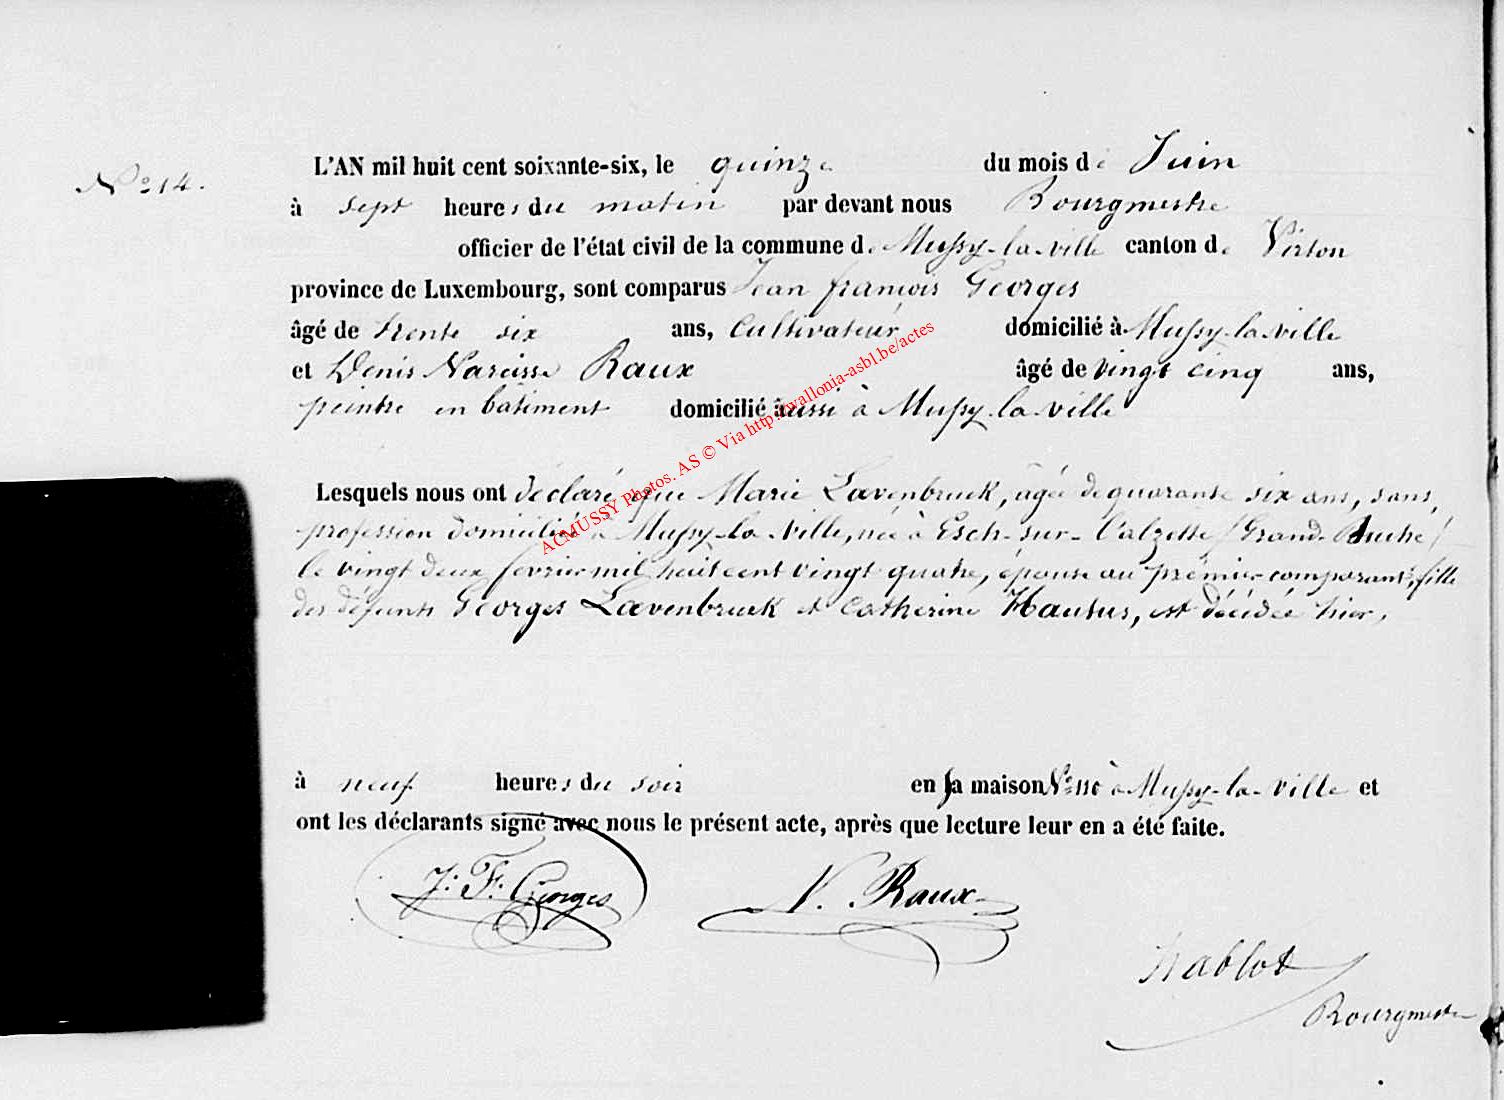 N° 14.
L'AN mil huit cent soixante-six, le quinze du mois de Juin
à sept heures du matin par devant nous Bourgmestre
officier de l'état civil de la commune de Mussy-la-ville canton de Virton
province de Luxembourg, sont comparus Jean françois Georges
âgé de trente six ans, Cultivateur domicilié à Mussy-la-ville
et Denis Narcisse Raux âgé de vingt cinq ans,
peintre en bâtiment domicilié aussi à Mussy-la-ville
Lesquels nous ont déclaré que Marie Lœvenbruck, âgée de quarante six ans, sans
profession domiciliée à Mussy-la-Ville, née à Esch-sur-l'alzette (Grand-Duché)
le vingt deux fevrier mil huit cent vingt quatre, épouse au premier comparant, fille
des défunts Georges Lœvenbruck et Catherine Hausus, est décédée hier,
à neuf heures du soir en sa maison N° à Mussy-la-Ville et
ont les déclarants signé avec nous le présent acte, après que lecture leur en a été faite.
J. F. Georges N. Raux
Bourgmestre
ACMUSSY Photos. AS © Via http://wallonia-asbl.be/actes